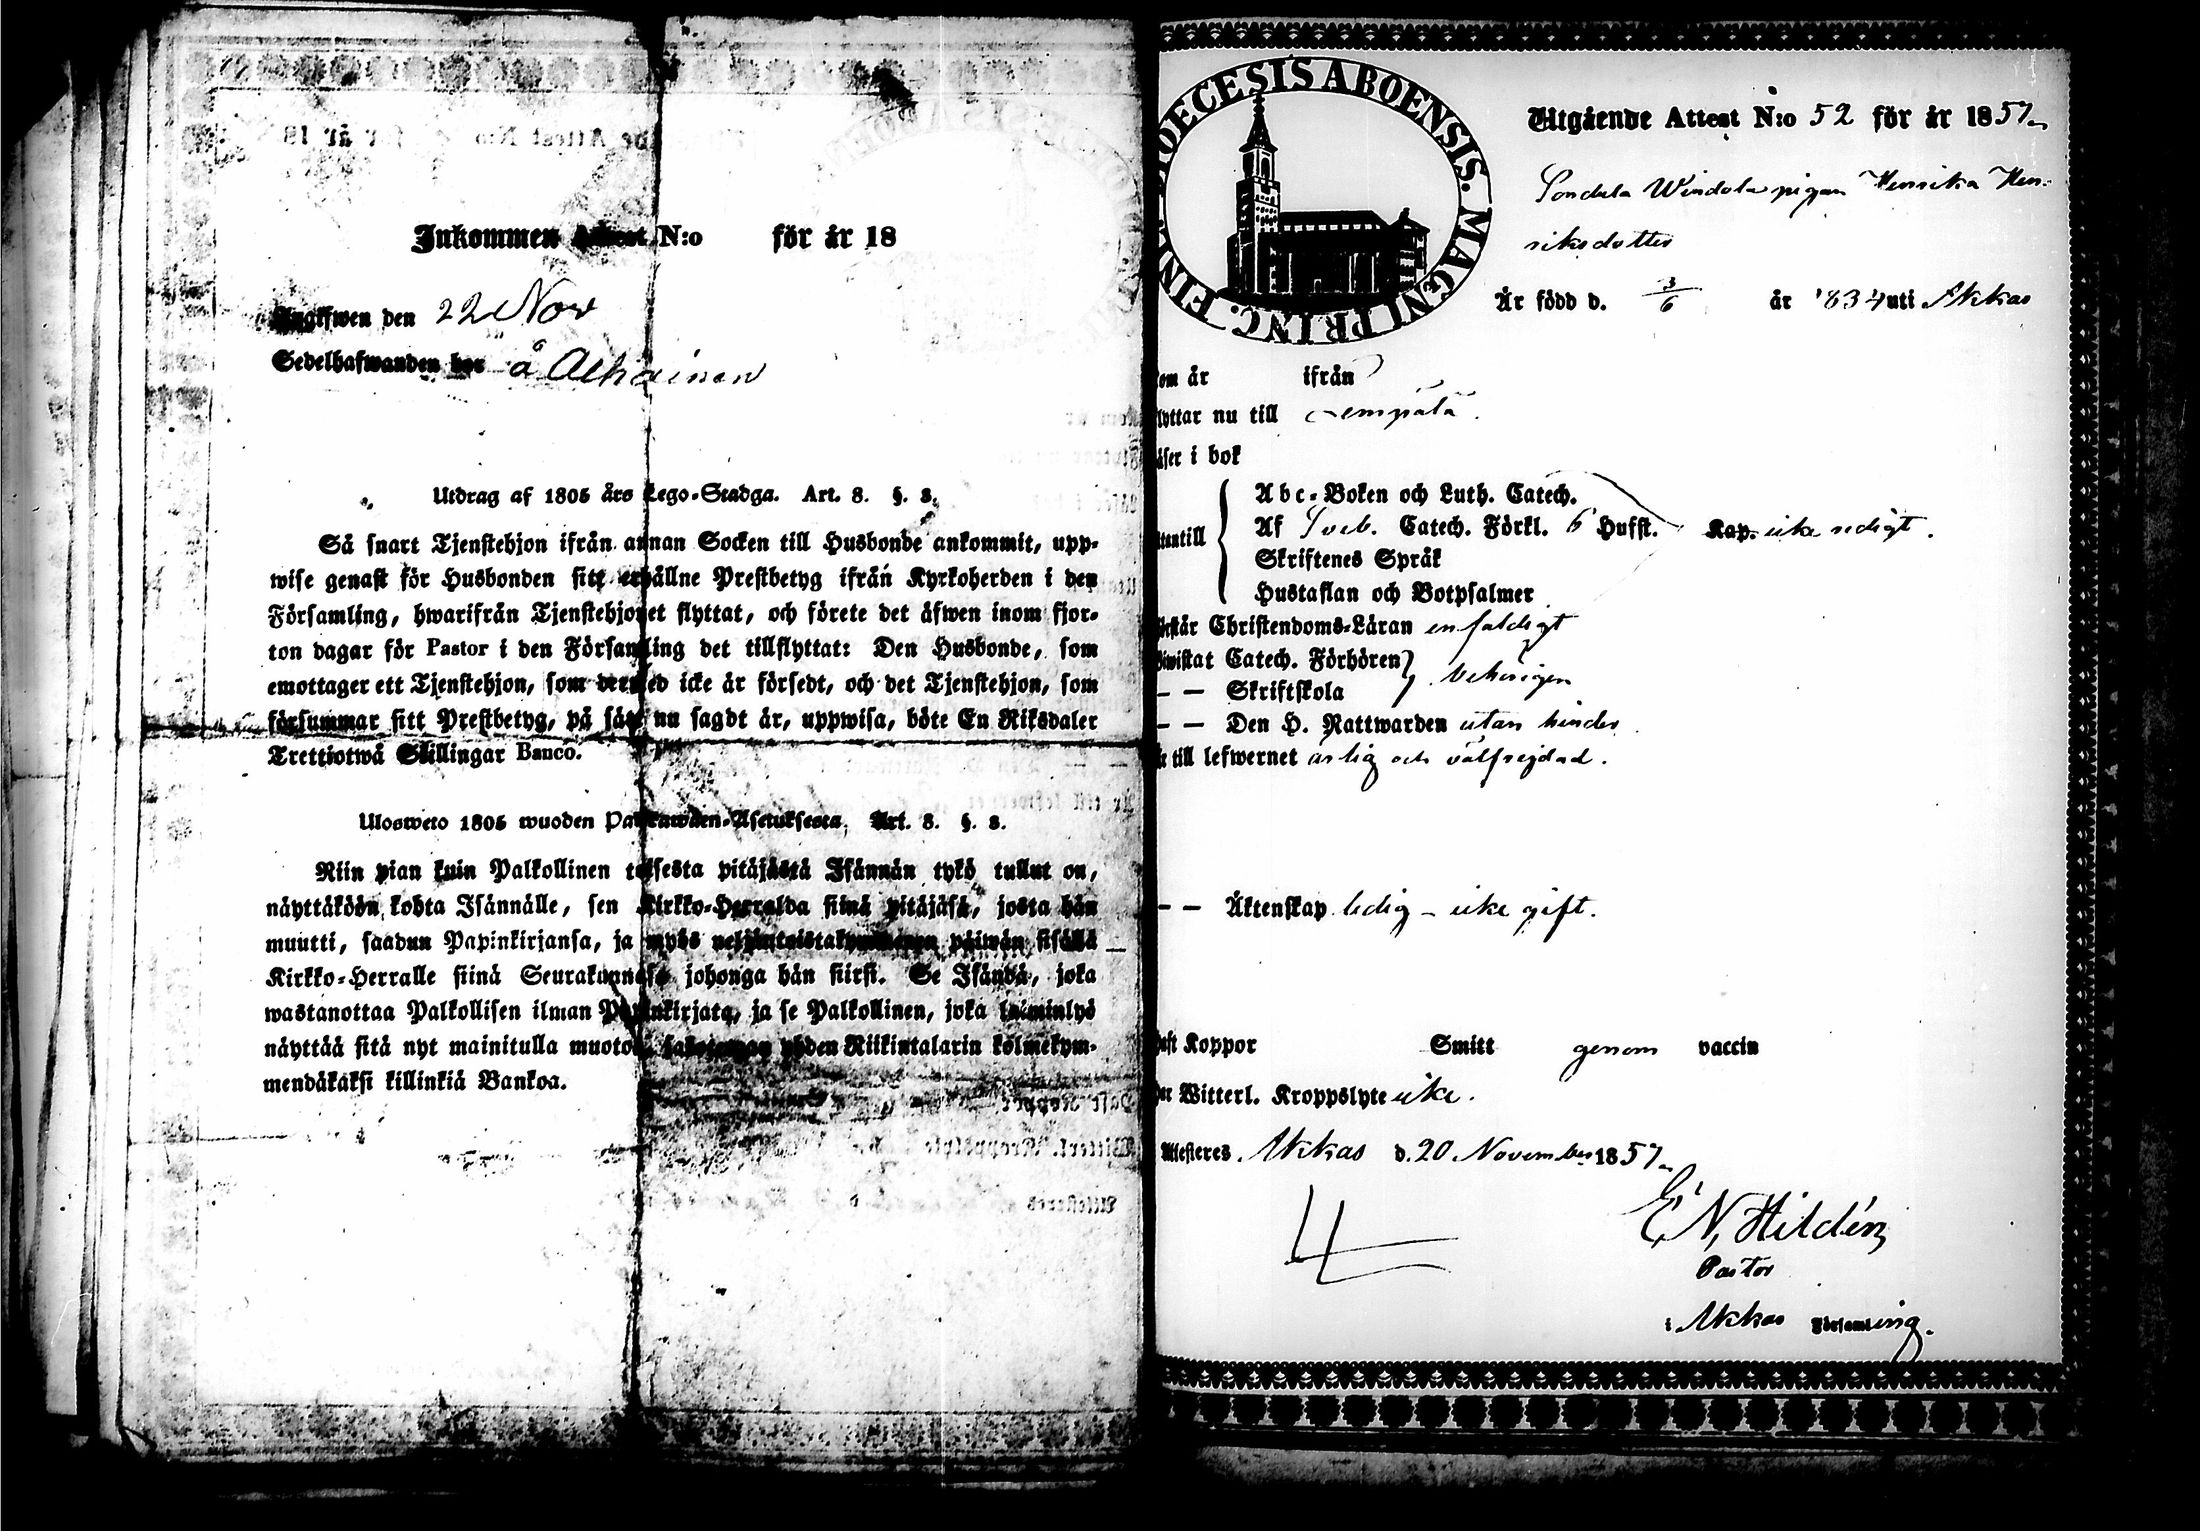 Inkommen Attest N:o för år 18
Angifwen den 22 Nov
Sedelhafwanden bor å Alhainen
Utdrag af 1805 års Lego-Stadga. Art. 8. §. 3.
Så snart Tjenstehjon ifrån annan Socken till Husbonde ankommit, upp-
wise genast för Husbonden sitt erhållne Prestbetyg ifrån Kyrkoherden i den
Församling, hwarifrån Tjenstehjonet flyttat, och förete det äfwen inom fjor-
ton dagar för Pastor i den Församling det tillflyttat: Den Husbonde, som
emottager ett Tjenstehjon, som dermed icke är försedt, och det Tjenstehjon, som
försummar sitt Prestbetyg, på sätt nu sagdt är, uppwisa, böte En Riksdaler
Trettiotwå Skillingar Banco.
Ulosweto 1805 wuoden Palkawäen-Asetuksesta, Art. 8. §. 3.
Niin pian kuin Palkollinen toisesta pitäjästä Isännän tykö tullut on,
näyttäköön kohta Isännälle, sen Kirkko-Herralda siinä pitäjäsä, josta hän
muutti, saadun Papinkirjansa, ja myös neljäntoistakymmenen päiwän sisällä
Kirkko-Herralle siinä Seurakunnasa johonga hän siirsi. Se Isändä, joka
wastanottaa Palkollisen ilman Papinkirjata, ja se Palkollinen, joka laiminlyö
näyttää sitä nyt mainitulla muotoa, yhden Riikintalarin kolmekym-
mendäkaksi killinkiä Bankoa.
DIOECESIS ABOENSIS. MAGNI PRINC. FINL.
Utgående Attest N:o 52 för år 1857
Sondala Windala pigan Henrika Hen-
riksdotter
Är född d. 3/6 år 1834 uti Akkas
om år ifrån
lyttar nu till empälä.
äser i bok
Abc-Boken och Luth. Catech.
Af Sveb. Catech. Förkl. 6 Hufst. Kap. icke redigt.
Skriftenes Språk
Hustaflan och Botpsalmer
Christendoms-Läran enfaldigt
Catech. Förhören
behörigen
— — Skriftskola
— — Den H. Nattwarden utan hinder
till lefwernet ärlig och välfrejdad.
— — Äktenskap ledig – icke gift.
Koppor Smitt genom vaccin
Witterl. Kroppslyte icke.
Attesteres Akkas d. 20 November 1857
E, N, Hildén,
Pastor
i Akkas Församling.